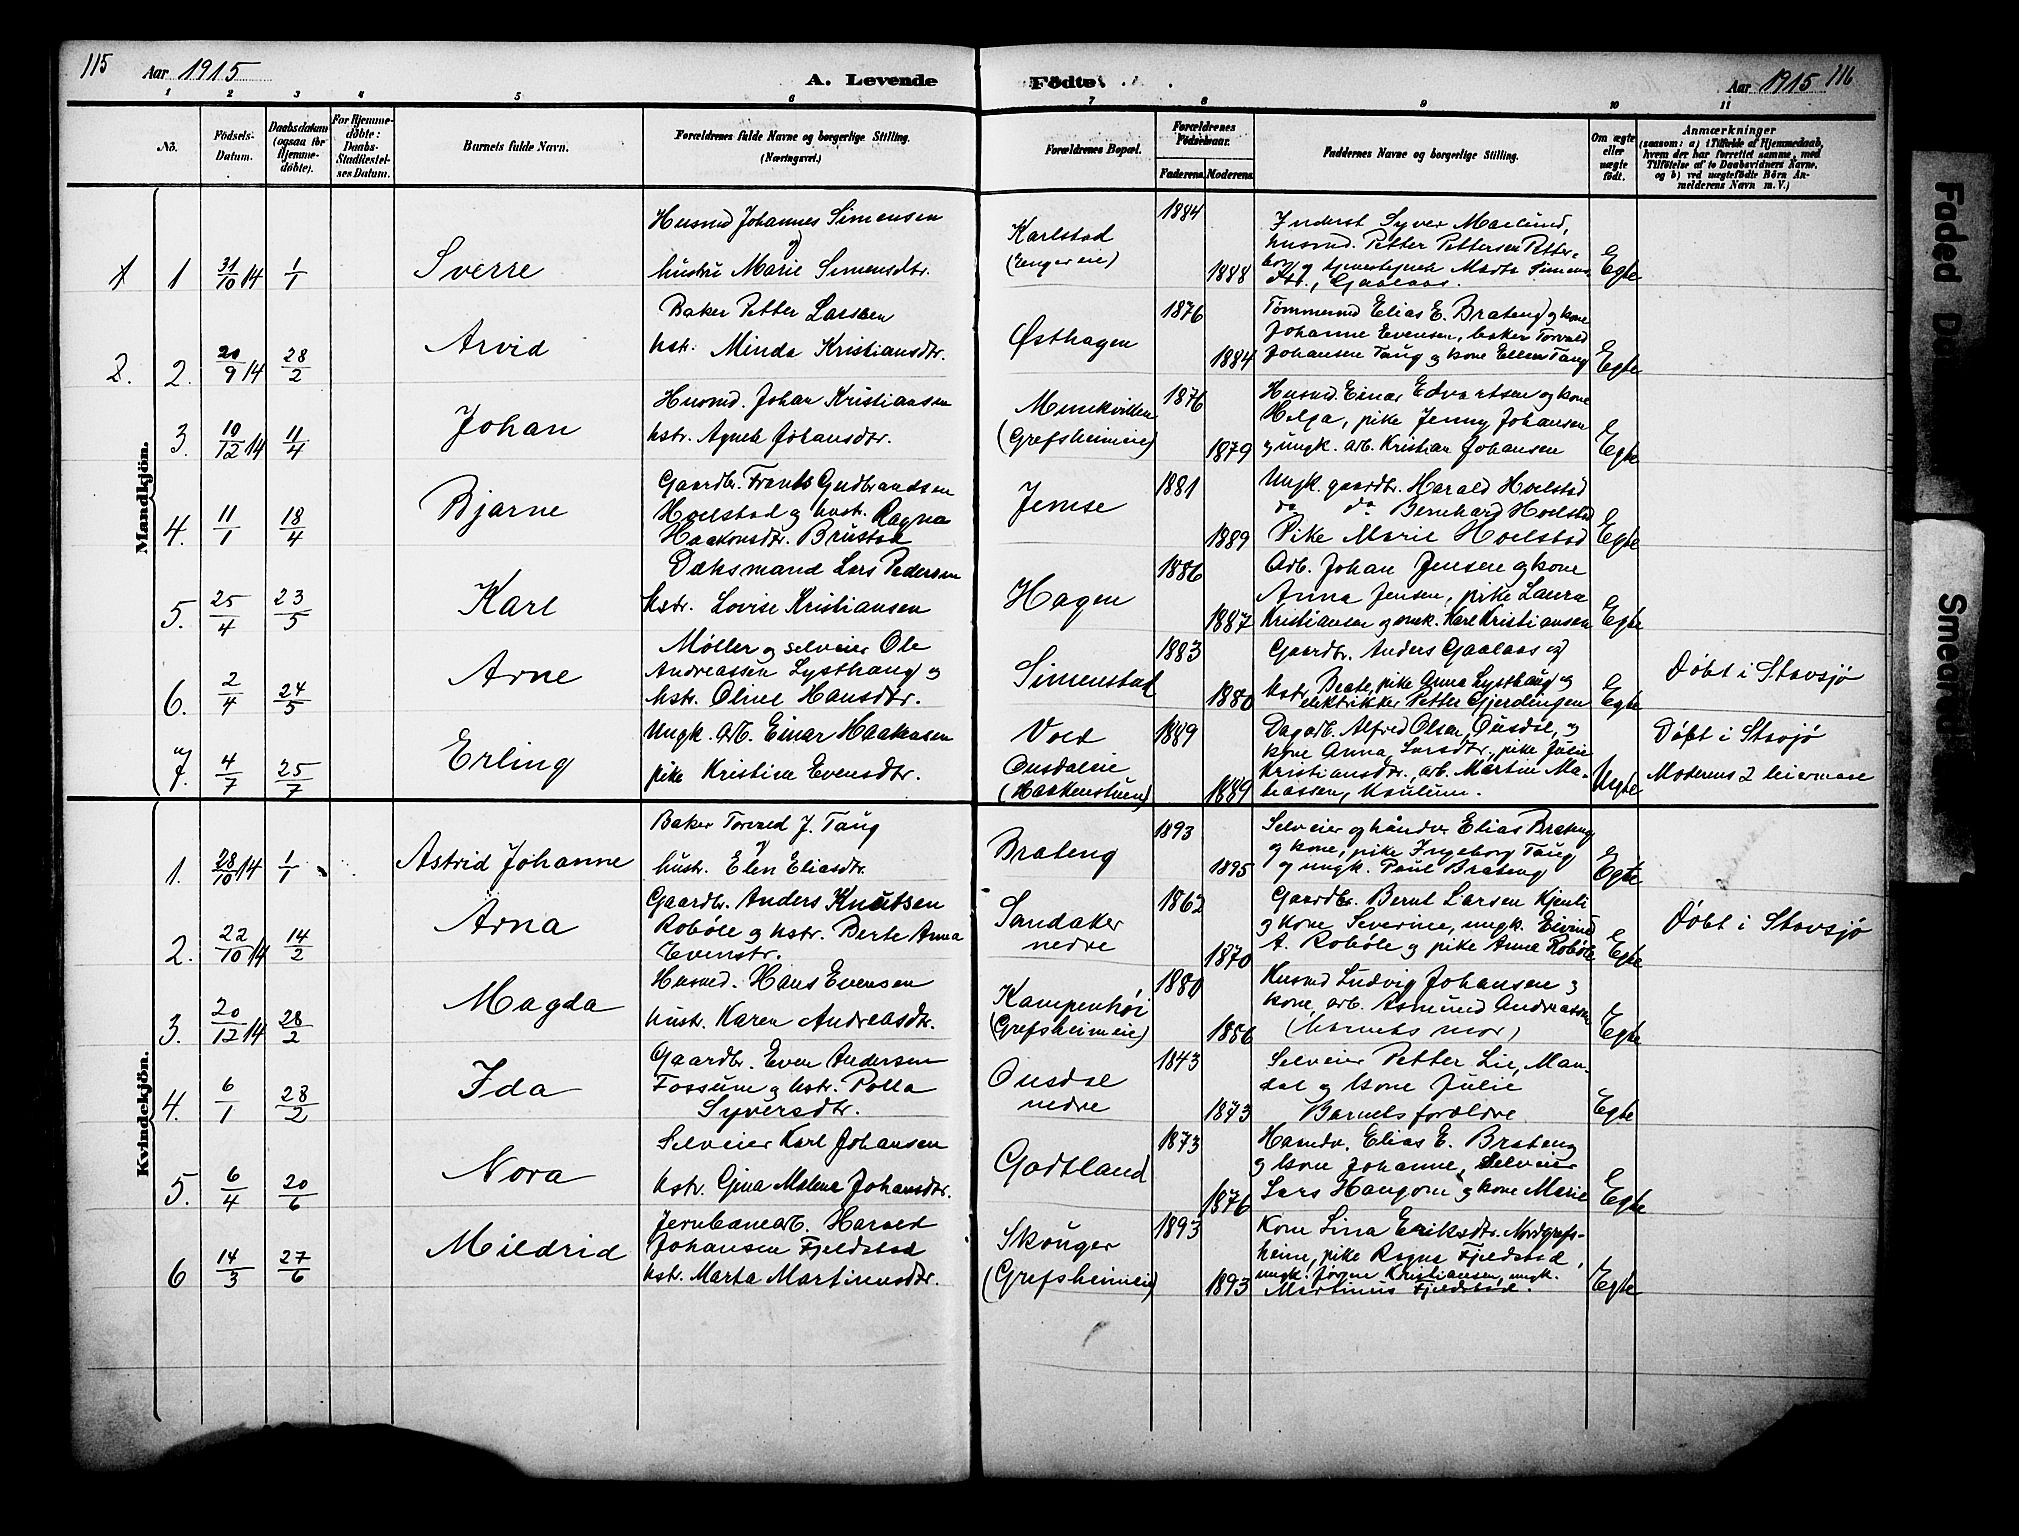 115 Aar 1915
A. Levende Födte.
Aar 1915 116
1 2 3 4 5 6 7 8 9 10 11
No.
Födsels-Datum.
Daabsdatum (ogsaa for Hjemme-döbte).
For Hjemme-döbte: Daabs-Stadfæstel-ses Datum.
Barnets fulde Navn.
Forældrenes fulde Navne og borgerlige Stilling.
(Næringsvei.)
Forældrenes Bopæl.
Forældrenes Födselsaar.
Faderens. Moderens.
Faddernes Navne og borgerlige Stilling.
Om ægte eller uægte født.
Anmærkninger
(saasom: a) i Tilfælde af Hjemmedaab, hvem der har forrettet samme, med Tilföielse af to Daabsvidners Navne, og b) ved uægtefödte Börn An-melderens Navn m. V.)
Mandkjön.
1 1 31/10 14 1/1 Sverre
Husmd Johannes Simensen
og
hustru Marie Simensdtr.
Karlstad
(Enger eie)
1884 1888
Inderst Syver Maelund,
husmd. Petter Pettersen Petter-
borg og tjenestepike Marte Simens
dtr., Gaalaas.
Egte
2. 2. 20/9 14 28/2 Arvid
Baker Petter Larssen
hstr. Minda Kristiansdtr.
Østhagen
1876 1884
Tømmermd Elias E. Brateng og kone
Johanne Evensen, baker Torvald
Johansen Taug og kone Ellen Taug
Egte
3. 10/12 14 11/4 Johan
Husmd. Johan Kristiansen
hstr. Agnethe Johansdtr.
(Grefsheimeie)
1876 1879
Husmd. Einar Edvartsen og kone
Helga, pike Jenny Johansen
og ungk. arb. Kristian Johansen
Egte
4. 11/1 18/4 Bjarne
Gaardbr. Frants Gudbrandsen
Hoelstad og hustr. Ragna
Haakonsdtr. Brustad
Jemse
1881 1889
Ungk. gaardbr. Harald Hoelstad
do do Bernhard Hoelstad
Pike Marie Hoelstad
Egte
5. 25/4 23/5 Karl
Dæksmand Lars Pedersen
hstr. Lovise Kristiansen
Hagen
1886 1887
Arb. Johan Jensen og kone
Anna Jensen, pike Laura
Kristiansen og ungk. Karl Kristiansen
Egte
6. 2/4 24/5 Arne
Møller og selveier Ole
Andreassen Lysthaug og
hstr. Oline Hansdtr.
Simenstad
1883 1880
Gaardbr. Anders Gaalaas og
hstr. Beate, pike Anna Lysthaug og
elektrikker Petter Gjerdingen
Egte
Døbt i Stavsjø
7. 4/7 25/7 Erling
Ungk. arb. Einar Haakensen
pike Kristine Evensdtr.
Vold
Ousdaleie
(Haakenstuen)
1889 1889
Dagarb. Alfred Olsen, Ousdal, og
kone Anna Larsdtr., pike Julie
Kristiansdtr., arb. Martin Ma-
Uegte
Døbt i Stavsjø
Moderens 2 leiermaal
Kvindekjön.
1. 28/10 14 1/1 Astrid Johanne
Baker Torvald J. Taug
og
hustr. Elen Eliasdtr.
Brateng
1893 1895
Selveier og håndv. Elias Brateng
og kone, pike Ingeborg Taug
og ungk. Paul Brateng
Egte
2. 22/10 14 14/2 Arna
Gaardbr. Anders Knutsen
Robøle og hstr. Berte Anna
Evenstr.
Sandaker
nedre
1862 1870
Gaardbr. Bernt Larsen Kjenli
og kone Severine, ungk. Eivind
A. Robøle og pike Anna Robøle
Egte
Døbt i Stavsjø
3. 20/12 14 28/2 Magda
Husmd. Hans Evensen
hustr. Karen Andreasdtr.
Kampenhøi
(Grefsheimeie)
1880 1886
Husmd Ludvig Johansen og
kone, arb. Asmund Andreassen
(barnets mor)
Egte
4. 6/1 28/2 Ida
Gaardbr. Even Andersen
Fossum og hstr. Polla
Syversdtr.
Ousdal
nedre
1843 1873
Selveier Petter Lie, Man-
dal og kone Julie
Barnets forældre
Egte
5. 6/4 20/6 Nora
Selveier Karl Johansen
hstr. Gina Malene Johansdtr.
Godtland
1873 1876
Haandv. Elias E. Brateng
og kone Johanne, Selveier
Lars Haugom og kone Marie
Egte
6 14/3 27/6 Mildrid
Jernbanearb. Harald
Johansen Fjeldstad
hstr. Marta Martinusdtr.
Skonger
(Grefsheimeie)
1893 1893
Kone Lina Eriksdtr. Nordgrefs-
heim, pike Ragna Fjeldstad,
ungk. Jørgen Kristiansen, ungk.
Martinus Fjeldstad.
Egte
Faded
Smeared